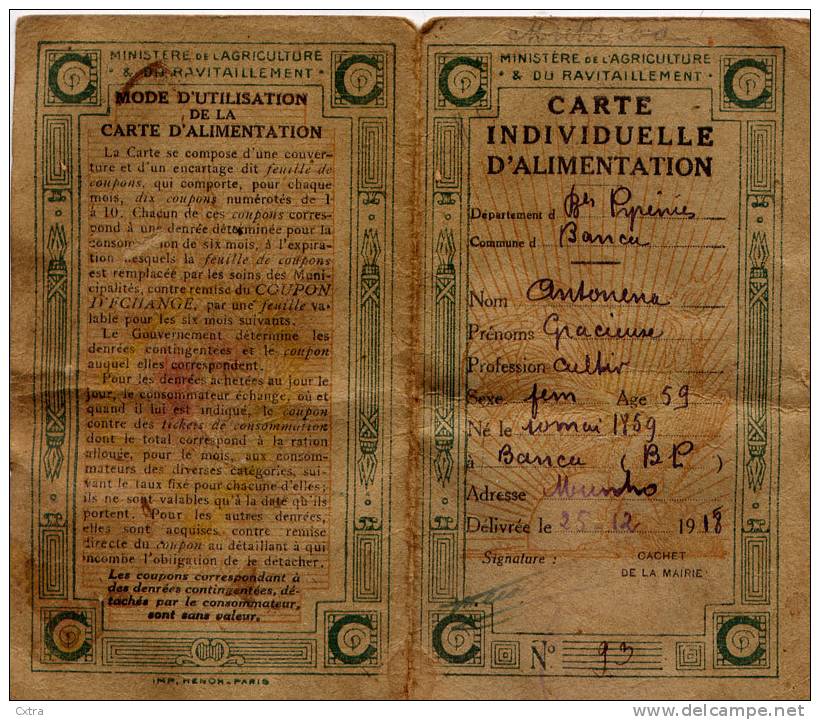 MINISTÈRE DE L'AGRICULTURE
& DU RAVITAILLEMENT
MODE D'UTILISATION
DE LA
CARTE D'ALIMENTATION
La Carte se compose d'une couver-
ture et d'un encartage dit feuille de
coupons, qui comporte, pour chaque
mois, dix coupons numérotés de 1
à 10. Chacun de ces coupons corres-
pond à une denrée déterminée pour la
consommation de six mois, à l'expira-
tion desquels la feuille de coupons
est remplacée par les soins des Muni-
cipalités, contre remise du COUPON
D'ÉCHANGE, par une feuille va-
lable pour les six mois suivants.
Le Gouvernement détermine les
denrées contingentées et le coupon
auquel elles correspondent.
Pour les denrées achetées au jour le
jour, le consommateur échange, où et
quand il lui est indiqué, le coupon
contre des tickets de consommation
dont le total correspond à la ration
allouée, pour le mois, aux consom-
mateurs des diverses catégories, sui-
vant le taux fixé pour chacune d'elles;
ils ne sont valables qu'à la date qu'ils
portent. Pour les autres denrées,
elles sont acquises contre remise
directe du coupon au détaillant à qui
incombe l'obligation de le détacher.
Les coupons correspondant à
des denrées contingentées, dé-
tachés par le consommateur,
sont sans valeur.
IMP. HENON-PARIS
MINISTÈRE DE L'AGRICULTURE
& DU RAVITAILLEMENT
CARTE
INDIVIDUELLE
D'ALIMENTATION
Département d Bses Pyrénées
Commune d Banca
Nom Antonena
Prénoms Gracieuse
Profession Cultiv
Sexe fem Age 59
Né le 10 mai 1859
à Banca (BP)
Adresse
Délivrée le 25-12 1918
Signature :
CACHET
DE LA MAIRIE
N° 93
Cxtra
www.delcampe.net